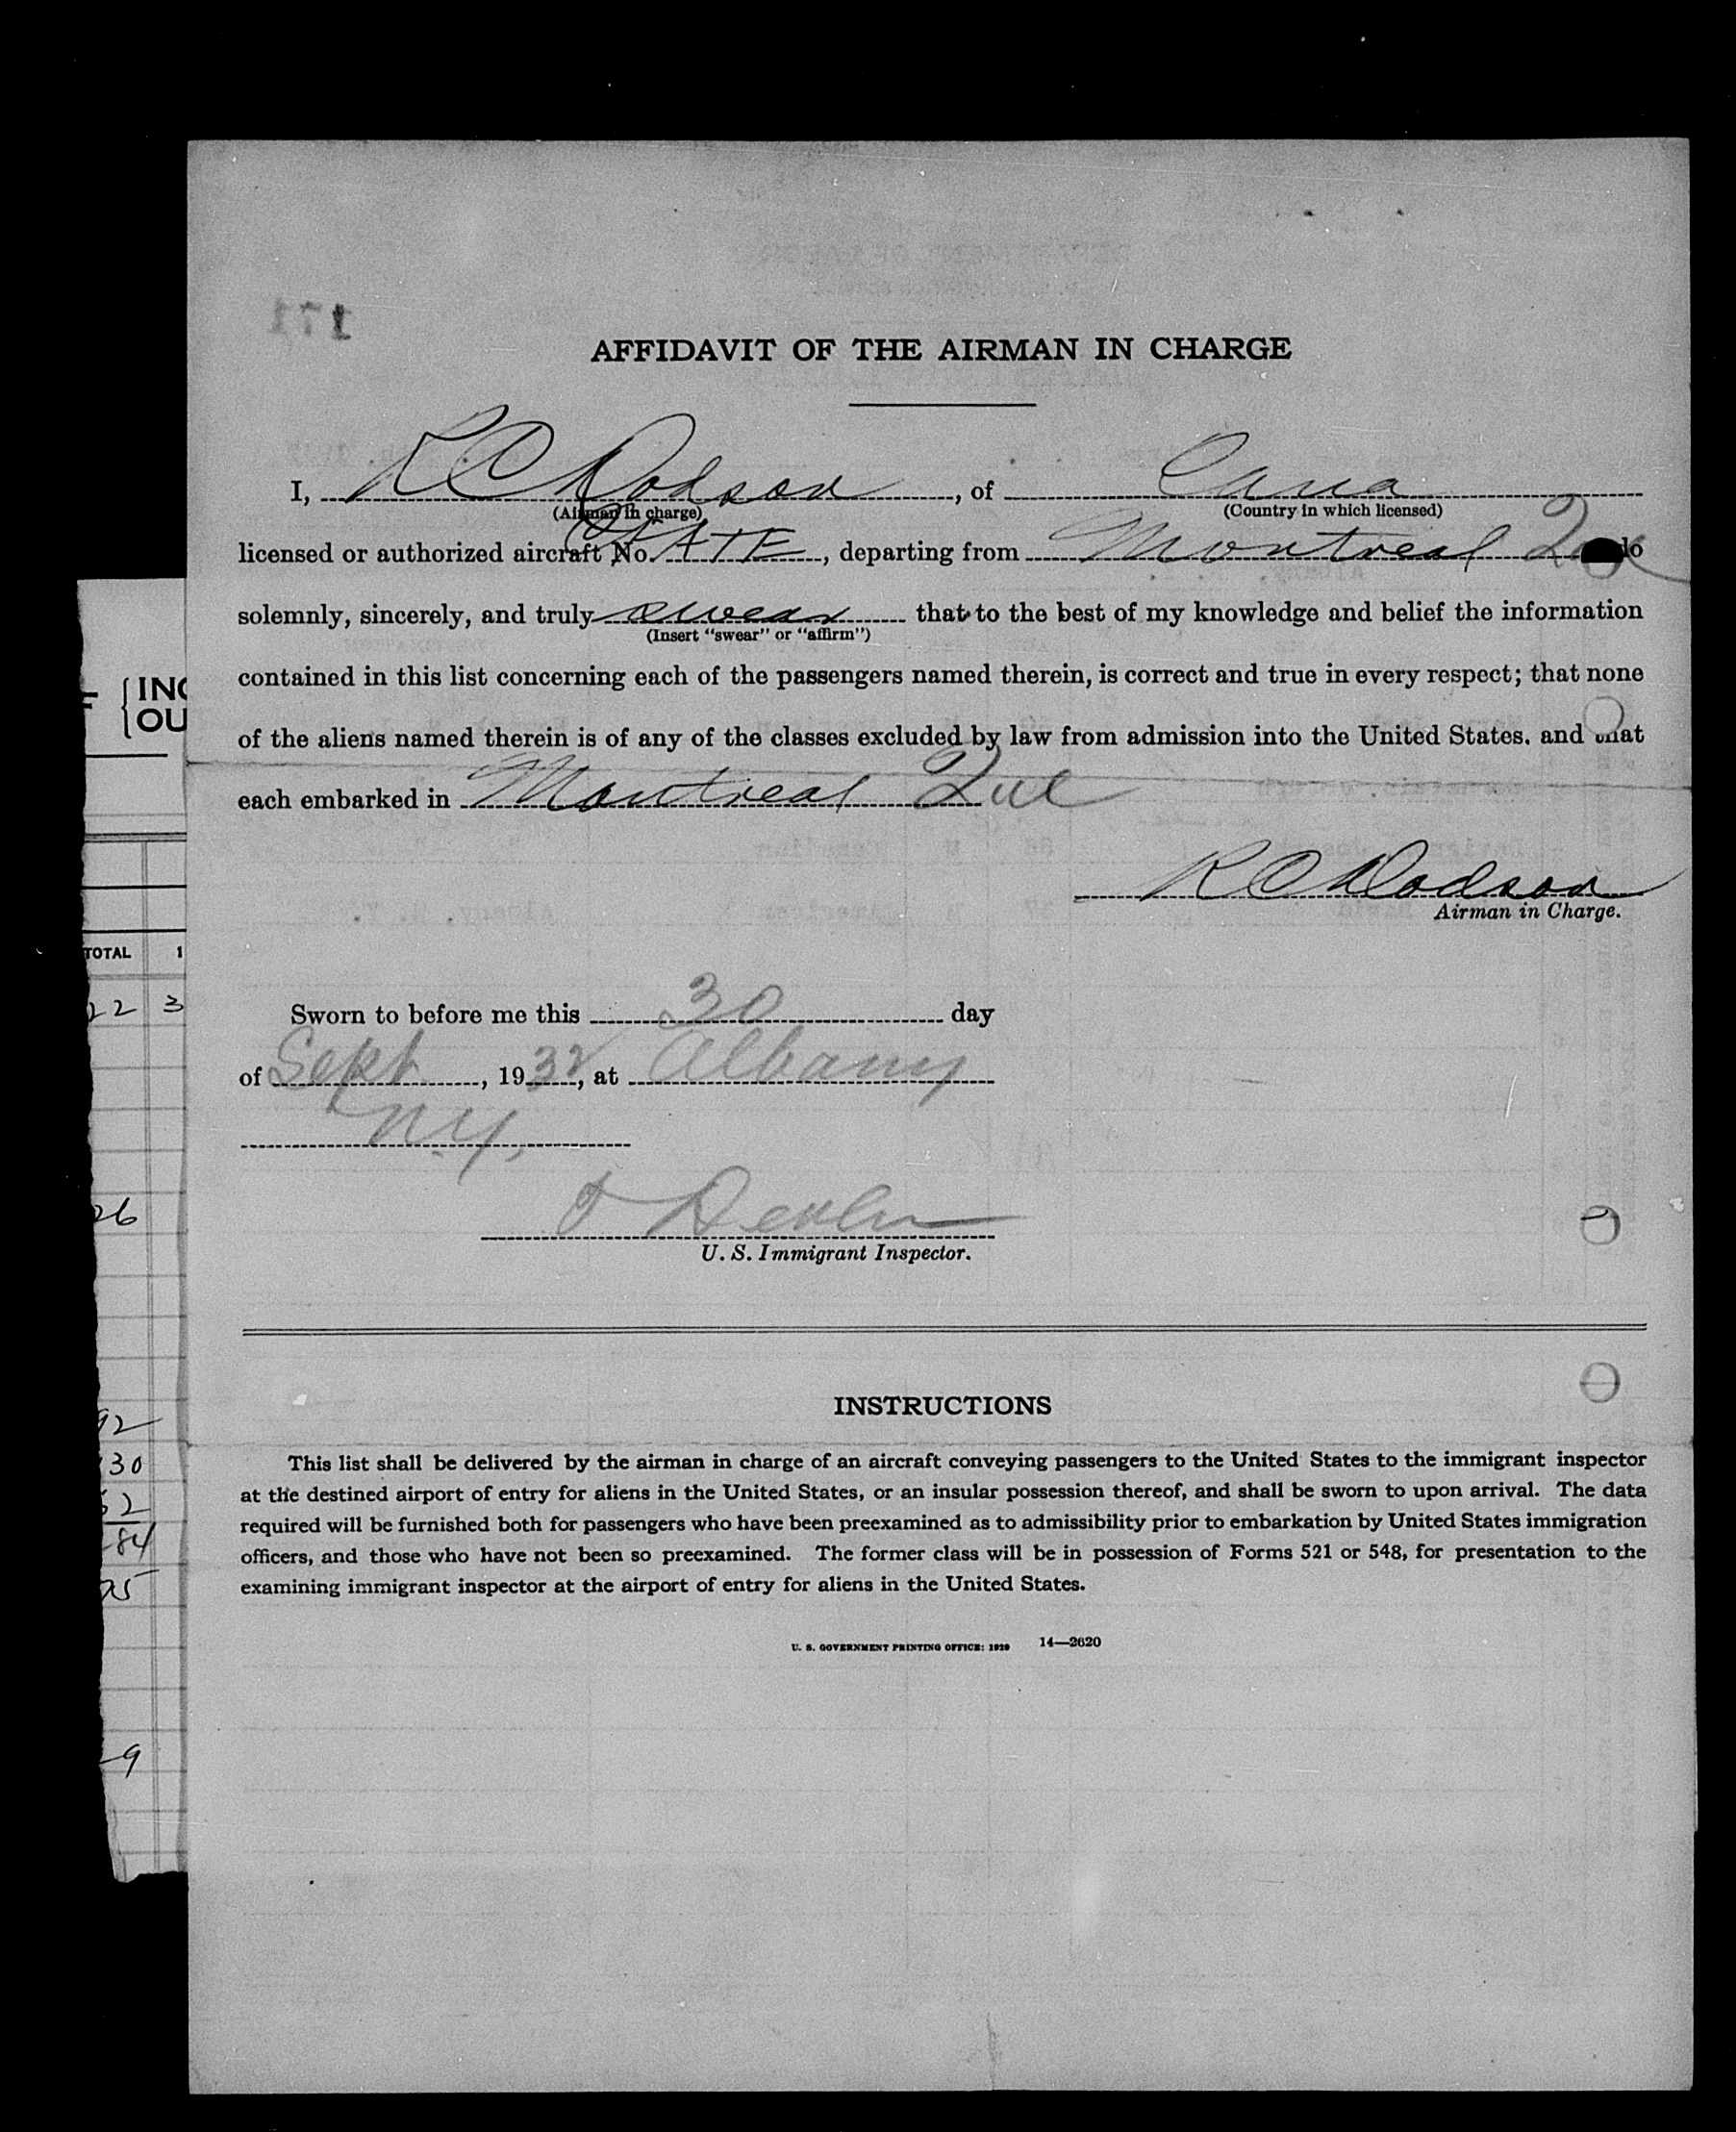 171
AFFIDAVIT OF THE AIRMAN IN CHARGE
I, R C Dodson, of Cana
(Airman in charge) (Country in which licensed)
licensed or authorized aircraft No. ATE, departing from Montreal Que do
solemnly, sincerely, and truly swear that to the best of my knowledge and belief the information
(Insert "swear" or "affirm")
contained in this list concerning each of the passengers named therein, is correct and true in every respect; that none
of the aliens named therein is of any of the classes excluded by law from admission into the United States, and that
each embarked in Montreal Que
R C Dodson
Airman in Charge.
Sworn to before me this 30 day
of Sept, 1932, at Albany
N.Y.
U. S. Immigrant Inspector.
INSTRUCTIONS
This list shall be delivered by the airman in charge of an aircraft conveying passengers to the United States to the immigrant inspector
at the destined airport of entry for aliens in the United States, or an insular possession thereof, and shall be sworn to upon arrival. The data
required will be furnished both for passengers who have been preexamined as to admissibility prior to embarkation by United States immigration
officers, and those who have not been so preexamined. The former class will be in possession of Forms 521 or 548, for presentation to the
examining immigrant inspector at the airport of entry for aliens in the United States.
U. S. GOVERNMENT PRINTING OFFICE: 1929 14—2620
INC
OU
TOTAL 1
22 3
26
92
30
52
84
25
9